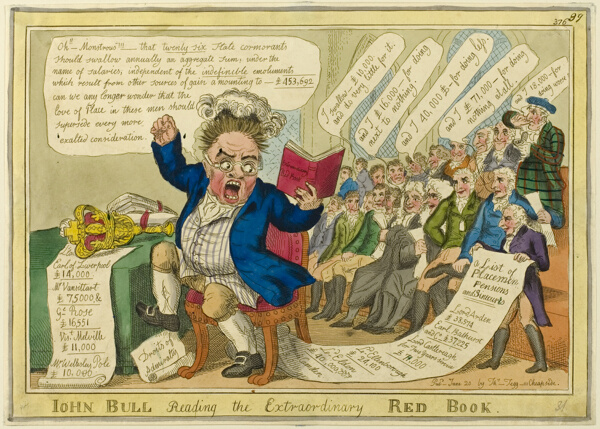 376 99
Oh!— Monstrous!!! — that twenty six State cormorants
should swallow annually an aggregate Sum, under the
name of salaries, independent of the indefinible emoluments
which result from other sources of gain amounting to — £453,692
can we any longer wonder that the
love of Place in these men should
supersede every more
exalted consideration
I swallow £10,000
and do very little for it.
and I £16,000 — for doing
next to nothing
and I 40,000 £ — for doing less.
nothing at all.
Earl of Liverpool
£14,000
Mr Vansittart
£75000 &
Ge Rose
£16551
Vist Melville
£11,000
Mr Wellesley Pole
£10,000
Droits of
Admiralty
A List of
Placemen
Pensions
and Sinecures
Lord Arden
£38574
Earl Bathurst
Lord Castlereagh
Pub June 20 by Thos Tegg Cheapside.
IOHN BULL Reading the Extraordinary RED BOOK.